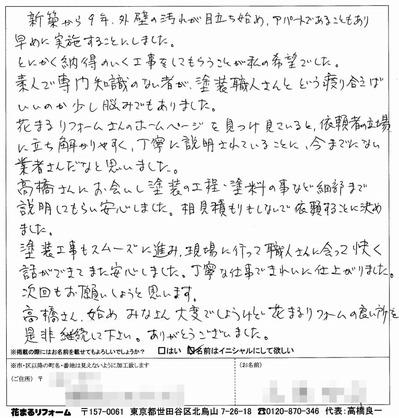 新築から9年、外壁の汚れが目立ち始め、アパートであることもあり
早めに実施することにしました。
とにかく納得のいく工事をしてもらうことが私の希望でした。
素人で専門知識のない者が、塗装職人さんとどう渡り合えば
いいのか少し悩みでもありました。
花まるリフォームさんのホームページを見つけ見ていると、依頼者の立場
に立ち解かりやすく、丁寧に説明されていることに、今までにない
業者さんだなと思いました。
高橋さんにお会いし塗装の工程・塗料の事など細部まで
説明してもらい安心しました。相見積もりもしないで依頼することに決め
ました。
塗装工事もスムーズに進み、現場に行って職人さんに会って快く
話ができてまた安心しました。丁寧な仕事できれいに仕上がりました。
次回もお願いしようと思います。
高橋さん、始め みなさん大変でしょうけど花まるリフォームの良い所を
是非継続して下さい。ありがとうございました。
※掲載の際にはお名前を載せてもよろしいでしょうか? □はい ☑名前はイニシャルにして欲しい
※市・区以降の町名・番地は見えないように加工致します
(ご住所) 〒
(お名前)
花まるリフォーム 〒157-0061 東京都世田谷区北烏山7-26-18 ☎0120-870-346 代表:高橋良一